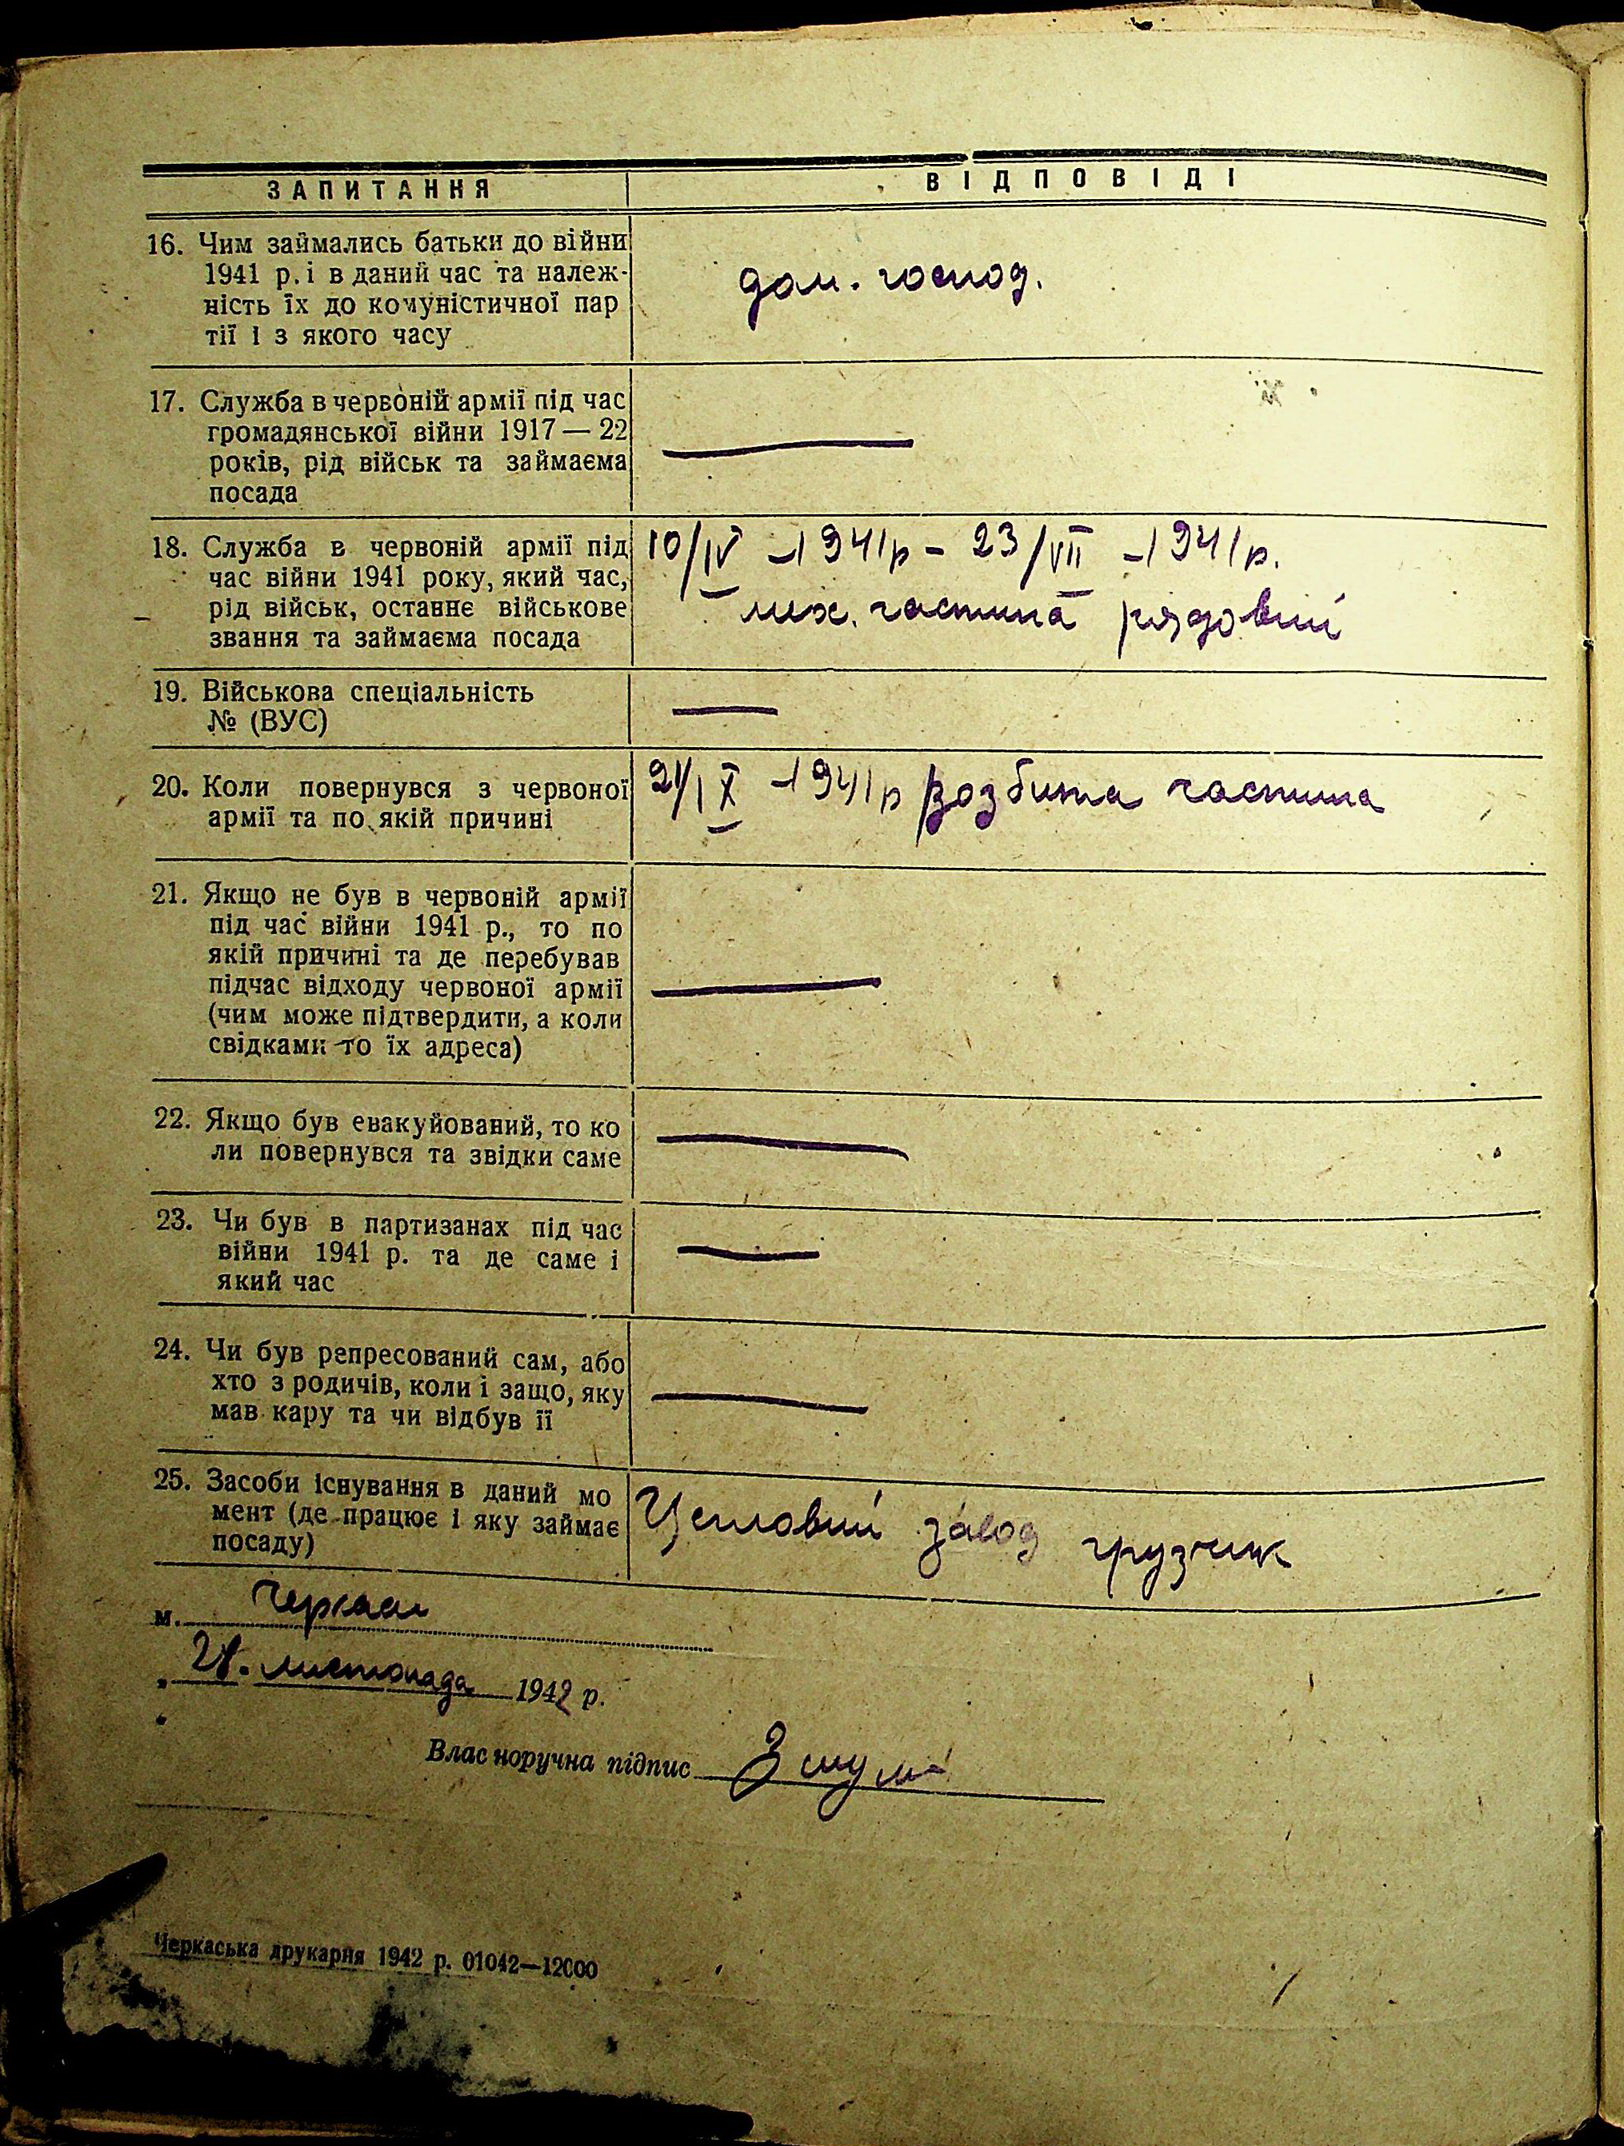 ЗАПИТАННЯ ВІДПОВІДІ
16. Чим займались батьки до війни
1941 р. і в даний час та належ-
ність їх до комуністичної пар
тії і з якого часу
дом. господ.
17. Служба в червоній армії під час
громадянської війни 1917 — 22
років, рід військ та займаєма
посада
18. Служба в червоній армії під
час війни 1941 року, який час,
рід військ, останнє військове
звання та займаєма посада
10/IV - 1941р - 23/VII - 1941р.
мех. частина рядовий
19. Військова спеціальність
№ (ВУС)
20. Коли повернувся з червоної
армії та по якій причині
IX - 1941р розбита частина
21. Якщо не був в червоній армії
під час війни 1941 р., то по
якій причині та де перебував
підчас відходу червоної армії
(чим може підтвердити, а коли
свідками то їх адреса)
22. Якщо був евакуйований, то ко
ли повернувся та звідки саме
23. Чи був в партизанах під час
війни 1941 р. та де саме і
який час
24. Чи був репресований сам, або
хто з родичів, коли і защо, яку
мав кару та чи відбув її
25. Засоби існування в даний мо
мент (де працює і яку займає
посаду)
завод грузчик
м. Черкаси
листопада 1942 р.
Власноручна підпис
Черкаська друкарня 1942 р. 01042—12000